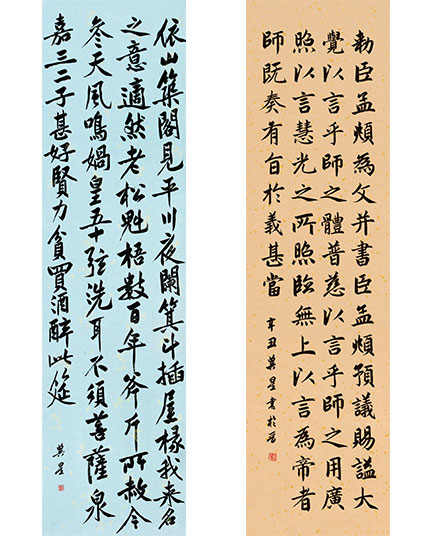 依山築閣見平川夜闌箕斗插屋椽我來名
之意適然老松魁梧數百年斧斤所赦今
參天風鳴媧皇五十弦洗耳不須菩薩泉
嘉三二子甚好賢力貧買酒醉此筵
莫星
勅臣孟頫為文并書臣孟頫預議賜謚大
覺以言乎師之體普慈以言乎師之用廣
照以言慧光之所照臨無上以言為帝者
師既奏有旨於義甚當
辛丑莫星書於